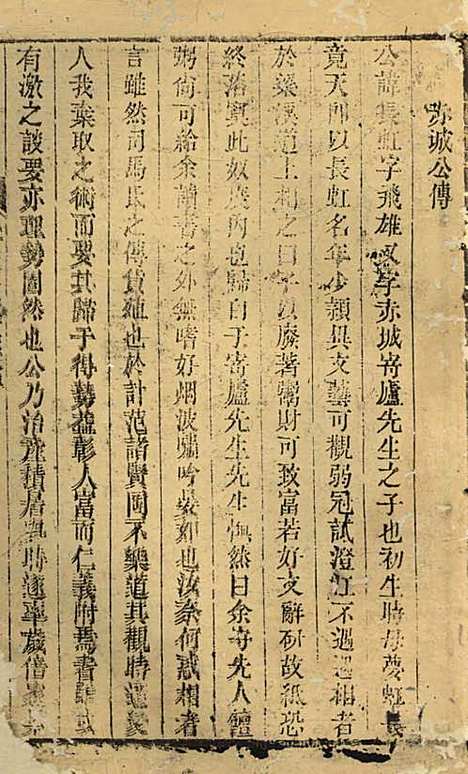 赤城公傳
公諱長虹字飛雄又字赤城寄廬先生之子也初生時母夢虹
竟天卽以長虹名年少穎異文藝可觀弱冠試澄江不遇遇相者
於藥溪道上相之曰子以廢著鬻財可致富若好文辭硏故紙恐
終落寞此奴僕丙也歸白于寄廬先生先生憮然曰余守先人饘
粥尙可給余讀書之外無嗜好烟波嘯吟晏如也汝奈何惑相者
言雖然司馬氏之傳貨殖也於計范諸賢固不樂道其觀時
人我棄取之術而要其歸于得勢益彰人富而仁義附焉書
有激之談要亦理勢固然也公乃治產積居與時逐